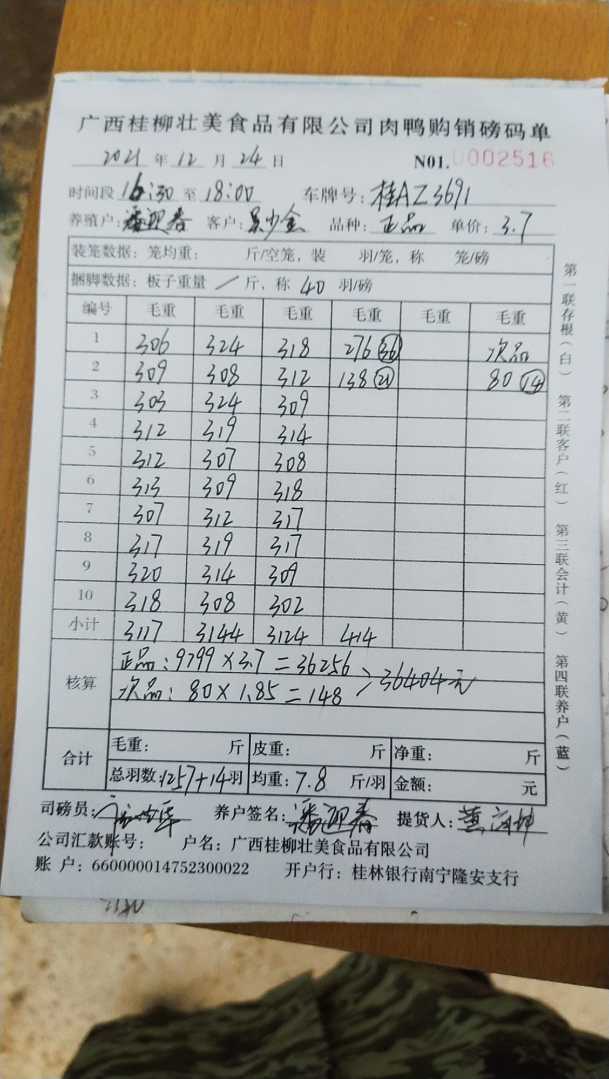 广西桂柳壮美食品有限公司肉鸭购销磅码单
2021 年 12 月 24 日 N01. 0002516
时间段 16:30 至 18:00 车牌号: 桂AZ3691
养殖户: 潘迎春 客户: 吴少金 品种: 正品 单价: 3.7
装笼数据: 笼均重: 斤/空笼, 装 羽/笼, 称 笼/磅
捆脚数据: 板子重量 / 斤, 称 40 羽/磅
编号 毛重 毛重 毛重 毛重 毛重 毛重
1 306 324 318 276 (36) 次品
2 309 308 312 138 (21) 80 (14)
3 303 324 309
4 312 319 314
5 312 307 308
6 313 309 318
7 307 312 317
8 317 319 317
9 320 314 309
10 318 308 302
小计 3117 3144 3124 414
核算 正品: 9799×3.7=36256
次品: 80×1.85=148 > 36404元
合计 毛重: 斤 皮重: 斤 净重: 斤
总羽数: 1257+14羽 均重: 7.8 斤/羽 金额: 元
司磅员: 养户签名: 潘迎春 提货人:
公司汇款账号: 户名: 广西桂柳壮美食品有限公司
账 户: 660000014752300022 开户行: 桂林银行南宁隆安支行
第一联存根(白) 第二联客户(红) 第三联会计(黄) 第四联养户(蓝)